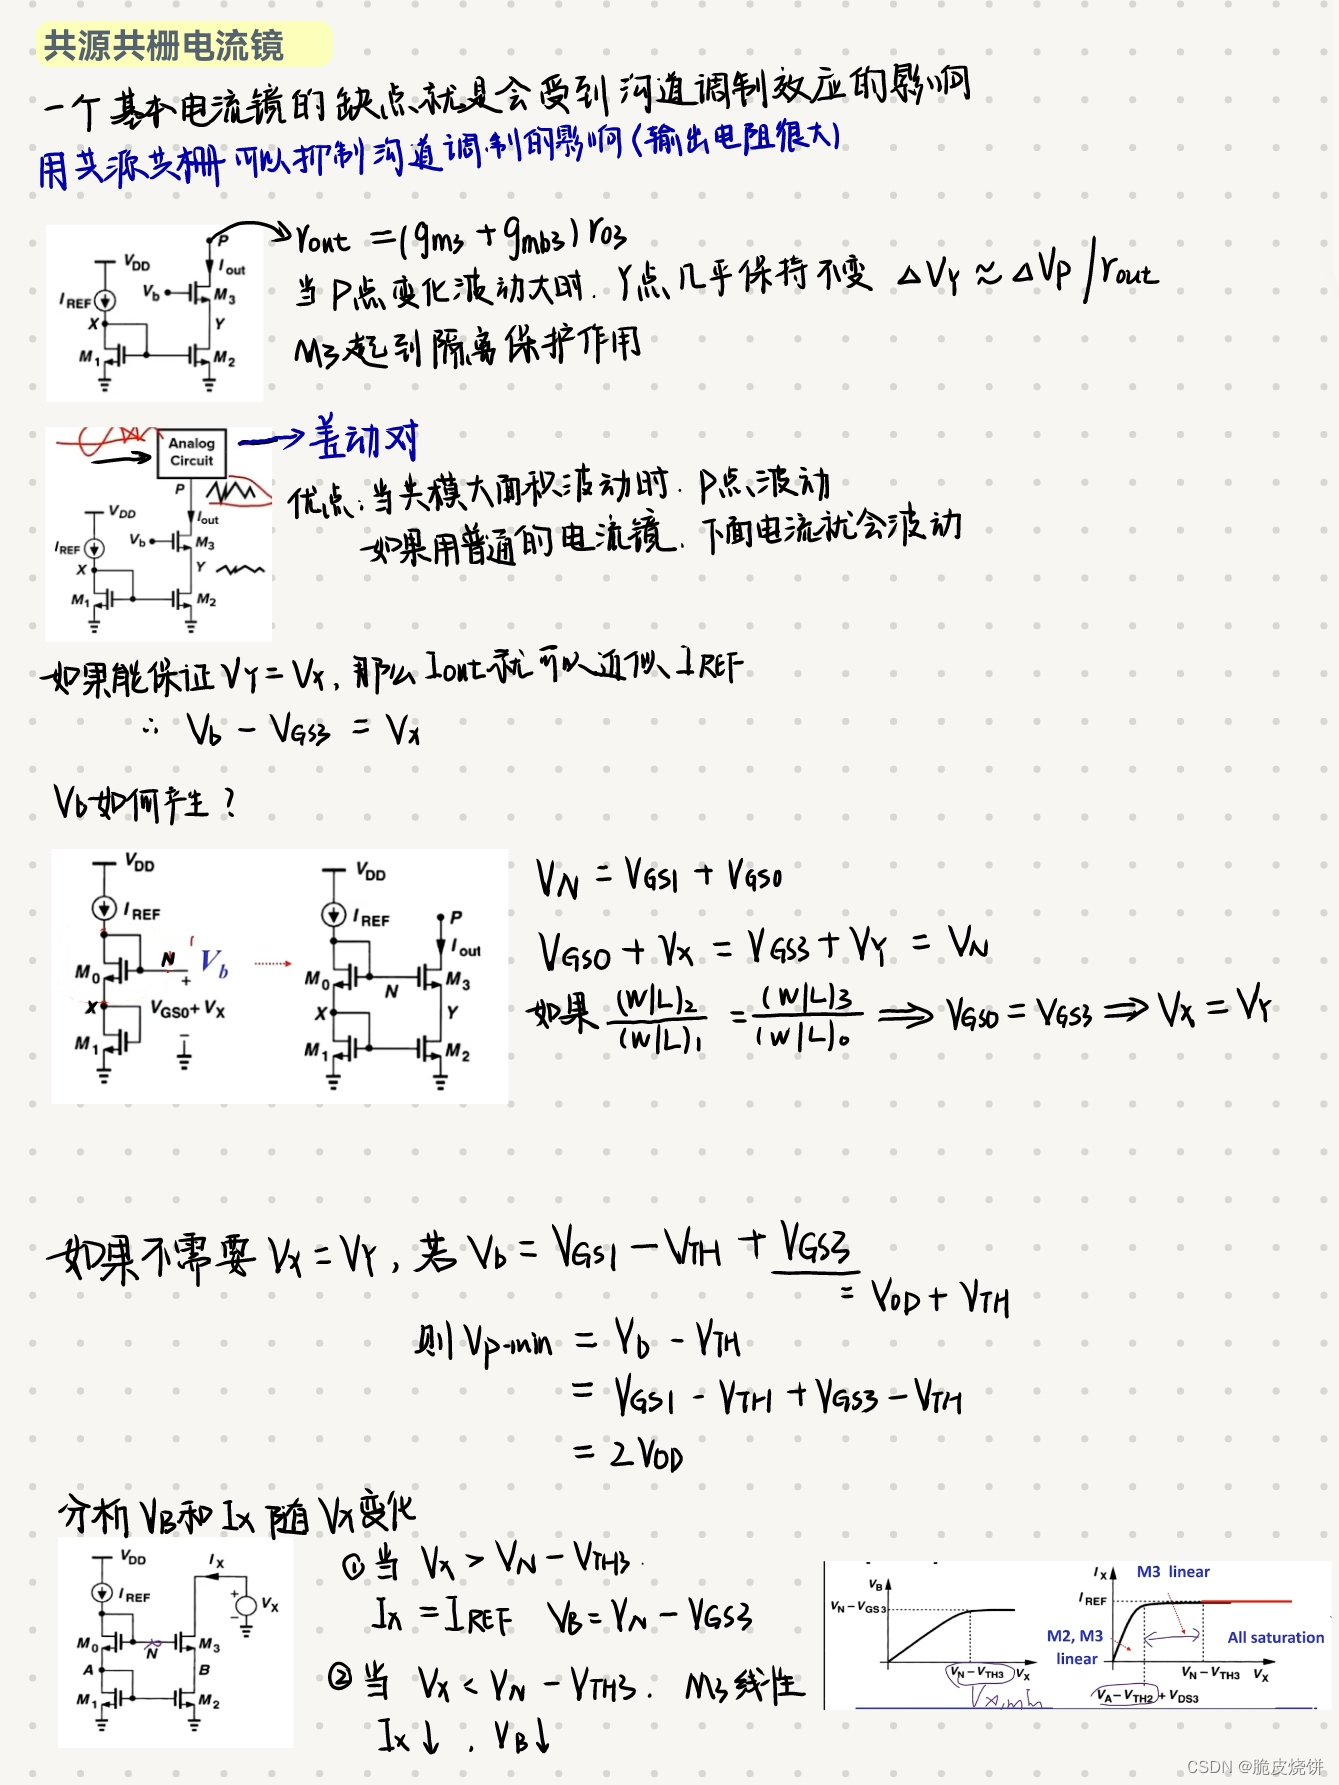 共源共栅电流镜
一个基本电流镜的缺点就是会受到沟道调制效应的影响
用共源共栅可以抑制沟道调制的影响(输出电阻很大)
P
VDD
Iout
IREF
Vb
M3
X
Y
M1
M2
rout = (gm3 + gmb3) ro3
当P点变化波动大时. Y点几乎保持不变 △VY ≈ △VP / rout
M3起到隔离保护作用
Analog
Circuit
→差动对
P
VDD
Iout
IREF
Vb
M3
X
Y
M1
M2
优点: 当共模大面积波动时. P点波动
如果用普通的电流镜. 下面电流就会波动
如果能保证 VY = Vx, 那么 Iout就可以近似 IREF
∴ Vb - VGS3 = Vx
Vb如何产生?
VDD
IREF
M0
N
+
Vb
X
VGS0+ VX
−
M1
VDD
IREF
P
Iout
M0
N
M3
X
Y
M1
M2
VN = VGS1 + VGS0
VGS0 + Vx = VGS3 + VY = VN
如果 (W/L)2/(W/L)1 = (W/L)3/(W/L)0 ⟹ VGS0 = VGS3 ⟹ Vx = VY
如果不需要 Vx = VY, 若 Vb = VGS1 - VTH + VGS3
= VOD + VTH
则 Vp-min = Vb - VTH
= VGS1 - VTH + VGS3 - VTH
= 2VOD
分析 VB和 Ix 随 Vx变化
VDD
IX
IREF
+
−
VX
M0
N
M3
A
B
M1
M2
① 当 Vx > VN - VTH3.
Ix = IREF VB = VN - VGS3
② 当 Vx < VN - VTH3. M3 线性
Ix↓ . VB↓
VB
VN−VGS3
VN−VTH3
VX
Vx,min
IX
M3 linear
IREF
M2, M3
linear
All saturation
VN−VTH3
VX
VA−VTH2+VDS3
CSDN @脆皮烧饼